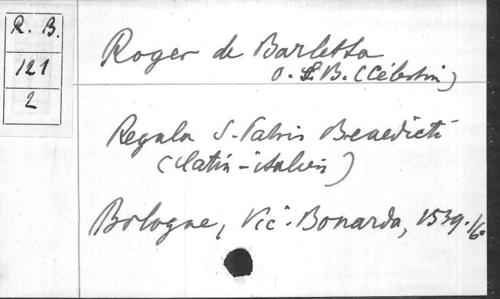 R. B.
121
2
Roger de Barletta
O. S. B. (Célestin)
Regula S. Patris Benedicti
(latin-italien)
Bologne, Vic. Bonarda, 1539. 16°